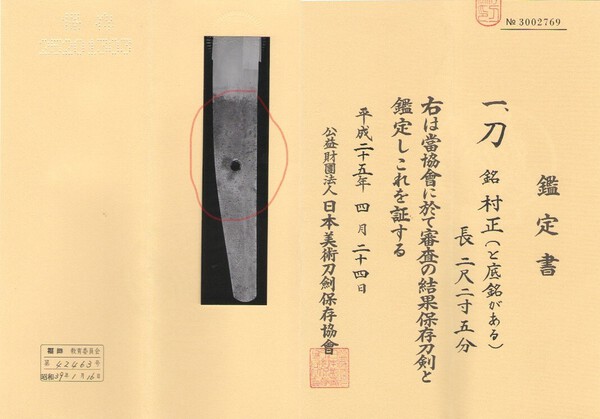 № 3002769
鑑定書
一、刀 銘 村正(と底銘がある)
長 二尺二寸五分
右は當協會に於て審査の結果保存刀剣と
鑑定しこれを証する
平成二十五年 四月 二十四日
公益財團法人 日本美術刀劍保存協會
教育委員会
第 42463 号
昭和39年1月16日